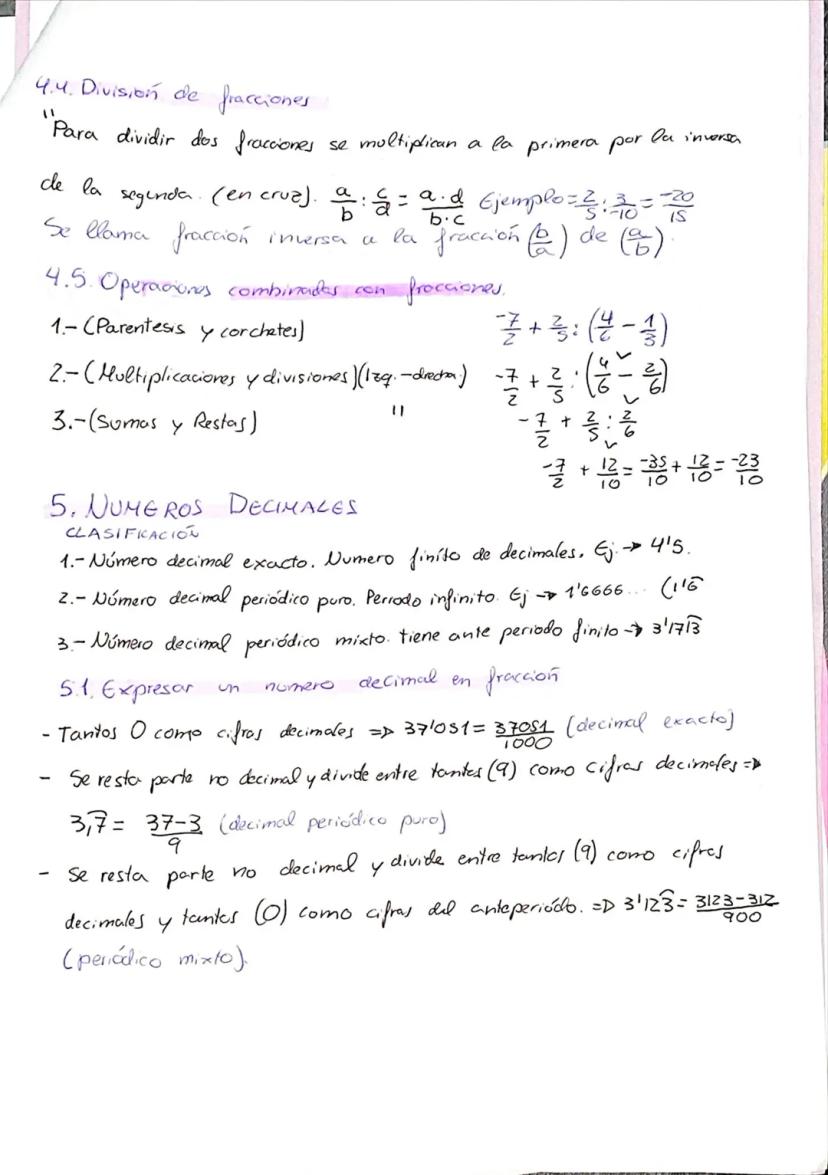 4.4. División de fracciones
"Para dividir dos fracciones se multiplican a la primera por la inversa
de la segunda. (en cruz). a/b : c/d = a·d/b·c Ejemplo = 2/5 : 3/-10 = -20/15
Se llama fracción inversa a la fracción (b/a) de (a/b).
4.5. Operaciones combinadas con fracciones.
1.- (Parentesis y corchetes) -7/2 + 2/5 : (4/6 - 1/3)
2.- (Multiplicaciones y divisiones) (Izq.-drecha.) -7/2 + 2/5 : (4/6 - 2/6)
3.- (Sumas y Restas) " -7/2 + 2/5 : 2/6
-7/2 + 12/10 = -35/10 + 12/10 = -23/10
5. NUMEROS DECIMALES
CLASIFICACIÓN
1.- Número decimal exacto. Numero finito de decimales. Ej. → 4'5.
2.- Número decimal periódico puro. Periodo infinito. Ej → 1'6666... (1'6̂
3.- Número decimal periódico mixto. tiene ante periodo finito → 3'171̂3̂
5.1. Expresar un numero decimal en fracción
- Tantos 0 como cifras decimales => 37'051 = 37051/1000 (decimal exacto)
- Se resta parte no decimal y divide entre tantos (9) como cifras decimales =>
3,7̂ = 37-3/9 (decimal periódico puro)
- Se resta parte no decimal y divide entre tantos (9) como cifras
decimales y tantos (0) como cifras del anteperiódo. => 3'123̂ = 3123-312/900
(periódico mixto).